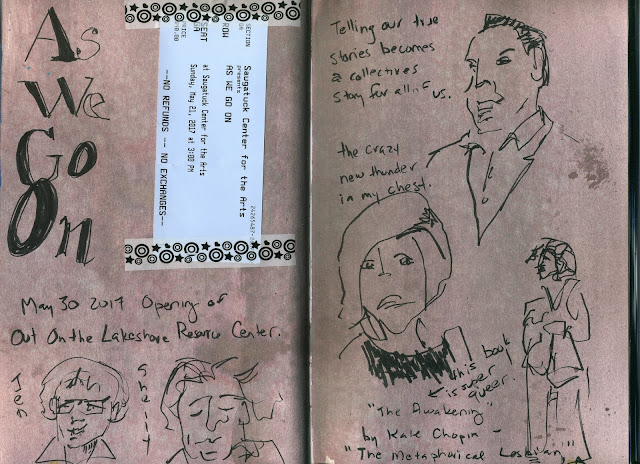 As
We
Go
On
SECTION
ROW
SEAT
Saugatuck Center for the Arts
presents
AS WE GO ON
at Saugatuck Center for the Arts
Sunday, May 21, 2017 at 3:00 PM
--NO REFUNDS -- NO EXCHANGES--
May 30 2017 Opening of
Out On the Lakeshore Resource Center.
Jen
Shelly
Telling our true
stories becomes
a collectives
story for all of us.
the crazy
new thunder
in my chest.
this book
is super
queer.
"The Awakening"
by Kate Chopin -
"The Metaphorical Lesbian"